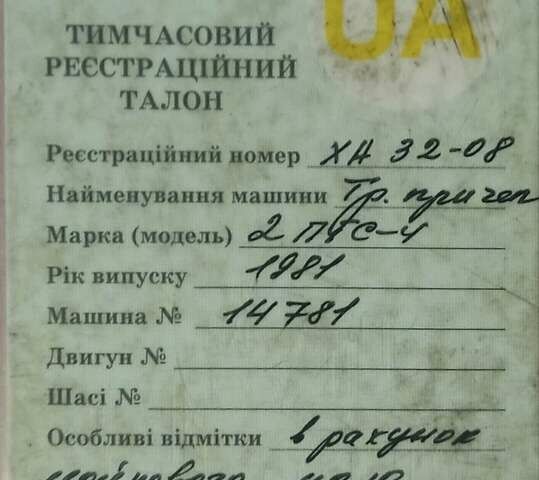 UA
ТИМЧАСОВИЙ
РЕЄСТРАЦІЙНИЙ
ТАЛОН
Реєстраційний номер ХА 32-08
Найменування машини Тр. причеп
Марка (модель) 2 ПТС-4
Рік випуску 1981
Машина № 14781
Двигун №
Шасі №
Особливі відмітки в рахунок